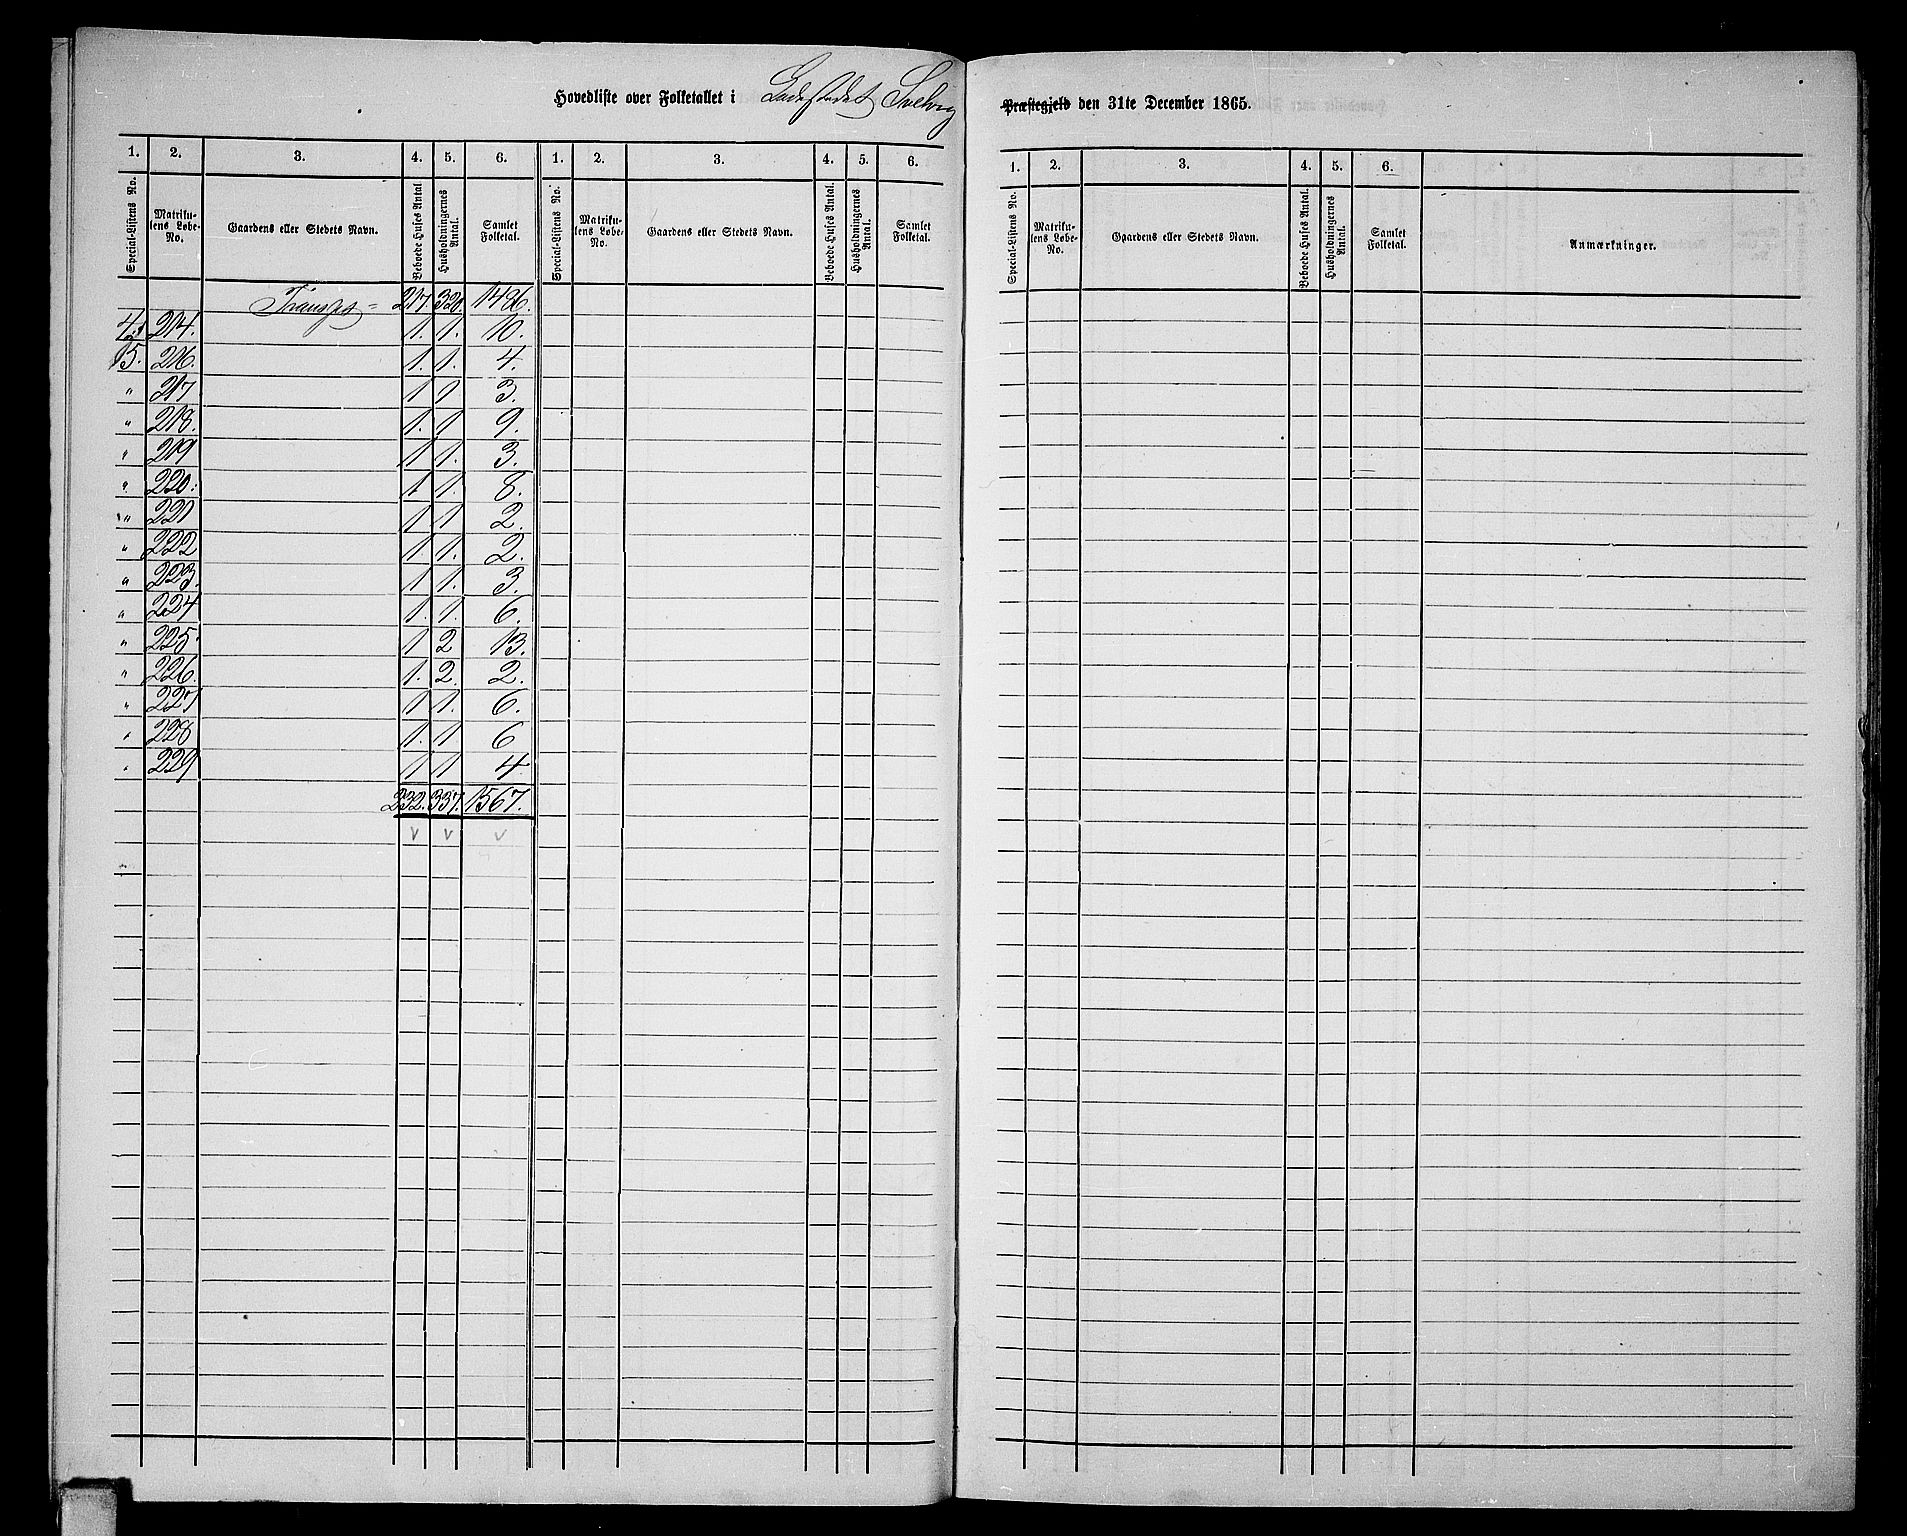 Hovedliste over Folketallet i Ladestedet Svelvig Præstegjeld den 31te December 1865.
1. 2. 3. 4. 5. 6. 1. 2. 3. 4. 5. 6.
Special-Listens No. Matrikulens Løbe-No. Gaardens eller Stedets Navn. Beboede Huses Antal. Husholdningernes Antal. Samlet Folketal. Special-Listens No. Matrikulens Løbe-No. Gaardens eller Stedets Navn. Beboede Huses Antal. Husholdningernes Antal. Samlet Folketal.
Transp = 217. 320. 1486.
214. 1. 1. 10.
15. 216. 1. 1. 4.
" 217 1 1 3.
" 218. 1. 1 9.
" 219 1 1. 3.
" 220. 1 1. 8.
" 221 1 1 2.
" 222 1. 1. 2.
" 223. 1 1. 3.
" 224 1. 1. 6.
" 225. 1 2 13.
" 226. 1. 2. 2.
" 227 1 1. 6.
" 228 1. 1 6
" 229 1 1 4.
232. 337. 1567.
v v v
1. 2. 3. 4. 5. 6.
Special-Listens No. Matrikulens Løbe-No. Gaardens eller Stedets Navn. Beboede Huses Antal. Husholdningernes Antal. Samlet Folketal. Anmærkninger.